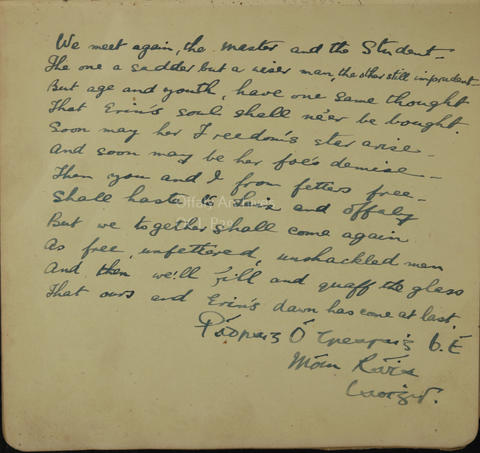 We meet again, the master and the Student –
The one a sadder but a wiser man, the other still imprudent –
But age and youth, have one same thought
That Erin's soul shall ne'er be bought.
Soon may her Freedom's star arise –
And soon may be her foe's demise –
Then you and I from fetters free –
Shall haste to and offaly
But we together shall come again
As free, unfettered, unshackled men
And then we'll fill and quaff the glass
That ours and Erin's dawn has come at last.
Ó
Offaly Archives